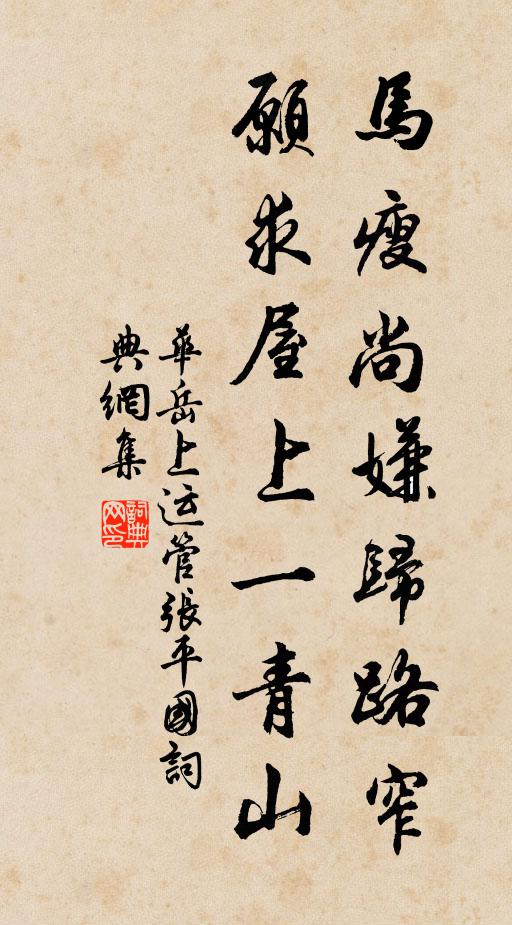 馬瘦尚嫌歸路窄
願求屋上一青山
華岳上运管張平國詞
典網集
詞典網印